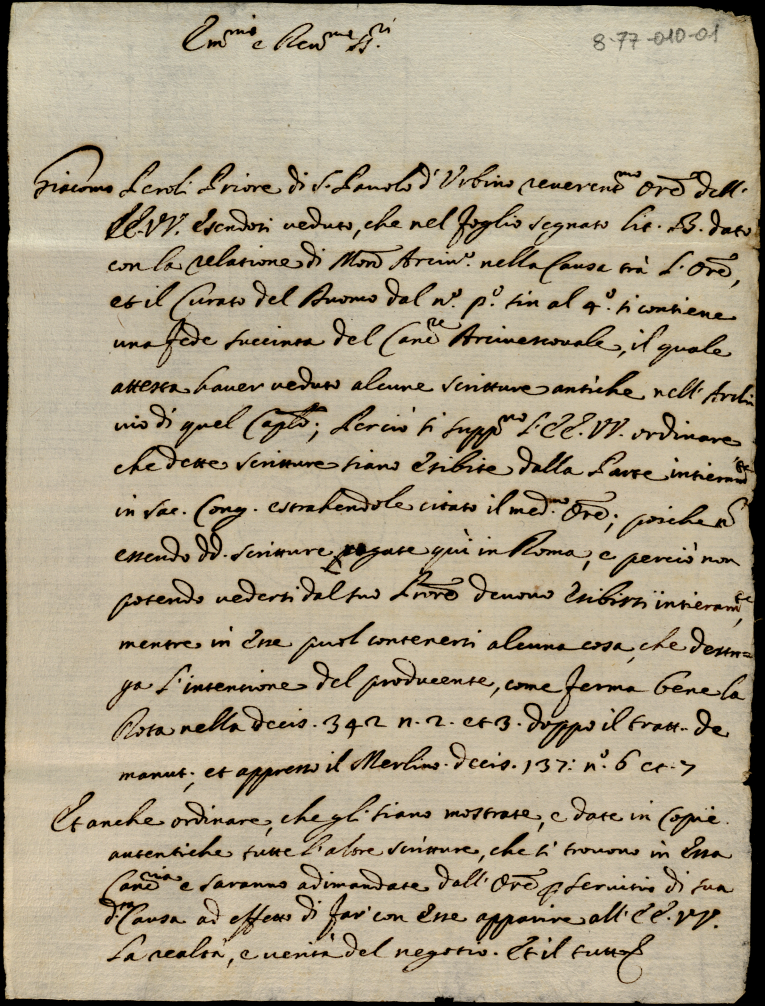 Em.mi e Rev.mi SS.ri
8-77-010-01
Giacomo Peroli Priore di S. Pavolo d'Urbino reverent.mo Ore dell'
EE.VV. Esendosi veduto, che nel foglio segnato lit. B. dato
con la relatione di Mons Arciv.o nella Causa trà l'Ore,
et il Curato del Duomo dal n.o p.o sin al 4.o si contiene
una fede succinta del Canc.re Arcivescovale, il quale
attesta haver veduto alcune scritture antiche nell'Archi
vio di quel Caplo; Perciò si supp.no l'EE.VV. ordinare
che dette scritture siano Esibite dalla Parte intieram.te
in Sac. Cong. estrahendole citato il med.mo Ore; poiche n
essendo dd. scritture rogate quì in Roma, e perciò non
potendo vedersi dal suo Prore devono Esibirsi intieram.te
mentre in Esse puol contenersi alcuna cosa, che destru=
ga l'intentione del producente, come ferma bene la
Rota nella decis. 342 n. 2. et 3. doppo il tratt. de
manut., et appresso il Merlino decis. 137: n.o 6 et 7
Et anche ordinare, che gli siano mostrate, e date in Copie
autentiche tutte l'altre scritture, che si trovono in Essa
Canc.ria e saranno adimandate dall'Ore p servitio di sua
d.a Causa ad effetto di far con Esse apparire all'EE.VV.
la realtà, e verità del negotio. Et il tutto